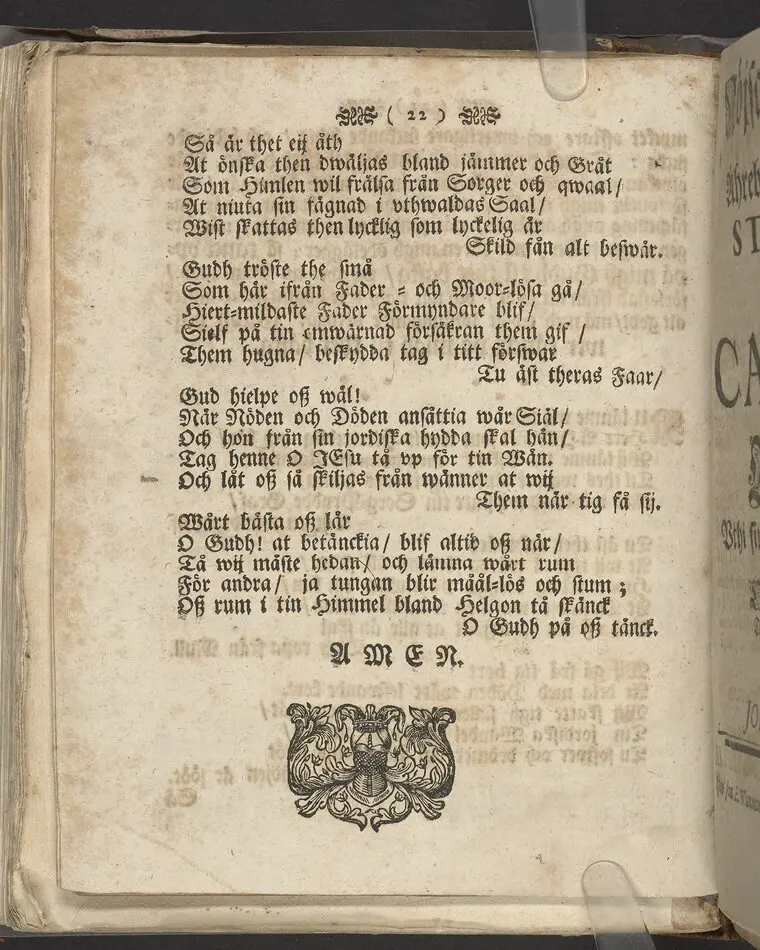 ( 22 )
Så är thet eij åth
At önska then dwäljas bland jämmer och Gråt
Som Himlen wil frälsa från Sorger och qwaal/
At niuta sin fägnad i vthwaldas Saal/
Wist skattas then lycklig som lyckelig är
Skild fån alt beswär.
Gudh tröste the små
Som här ifrån Fader = och Moor=lösa gå/
Hiert=mildaste Fader Förmyndare blif/
Sielf på tin omwårnad försäkran them gif /
Them hugna/ beskydda tag i titt förswar
Tu äst theras Faar/
Gud hielpe oß wäl!
När Nöden och Döden ansättia wår Siäl/
Och hon från sin jordiska hydda skal hän/
Tag henne O JEsu tå vp för tin Wän.
Och låt oß så skiljas från wänner at wij
Them när tig få sij.
Wårt bästa oß lär
O Gudh! at betänckia/ blif altid oß när/
Tå wij måste hedan/ och lämna wårt rum
För andra/ ja tungan blir måål=lös och stum ;
Oß rum i tin Himmel bland Helgon tå skänck
O Gudh på oß tänck.
A M E N.
CA